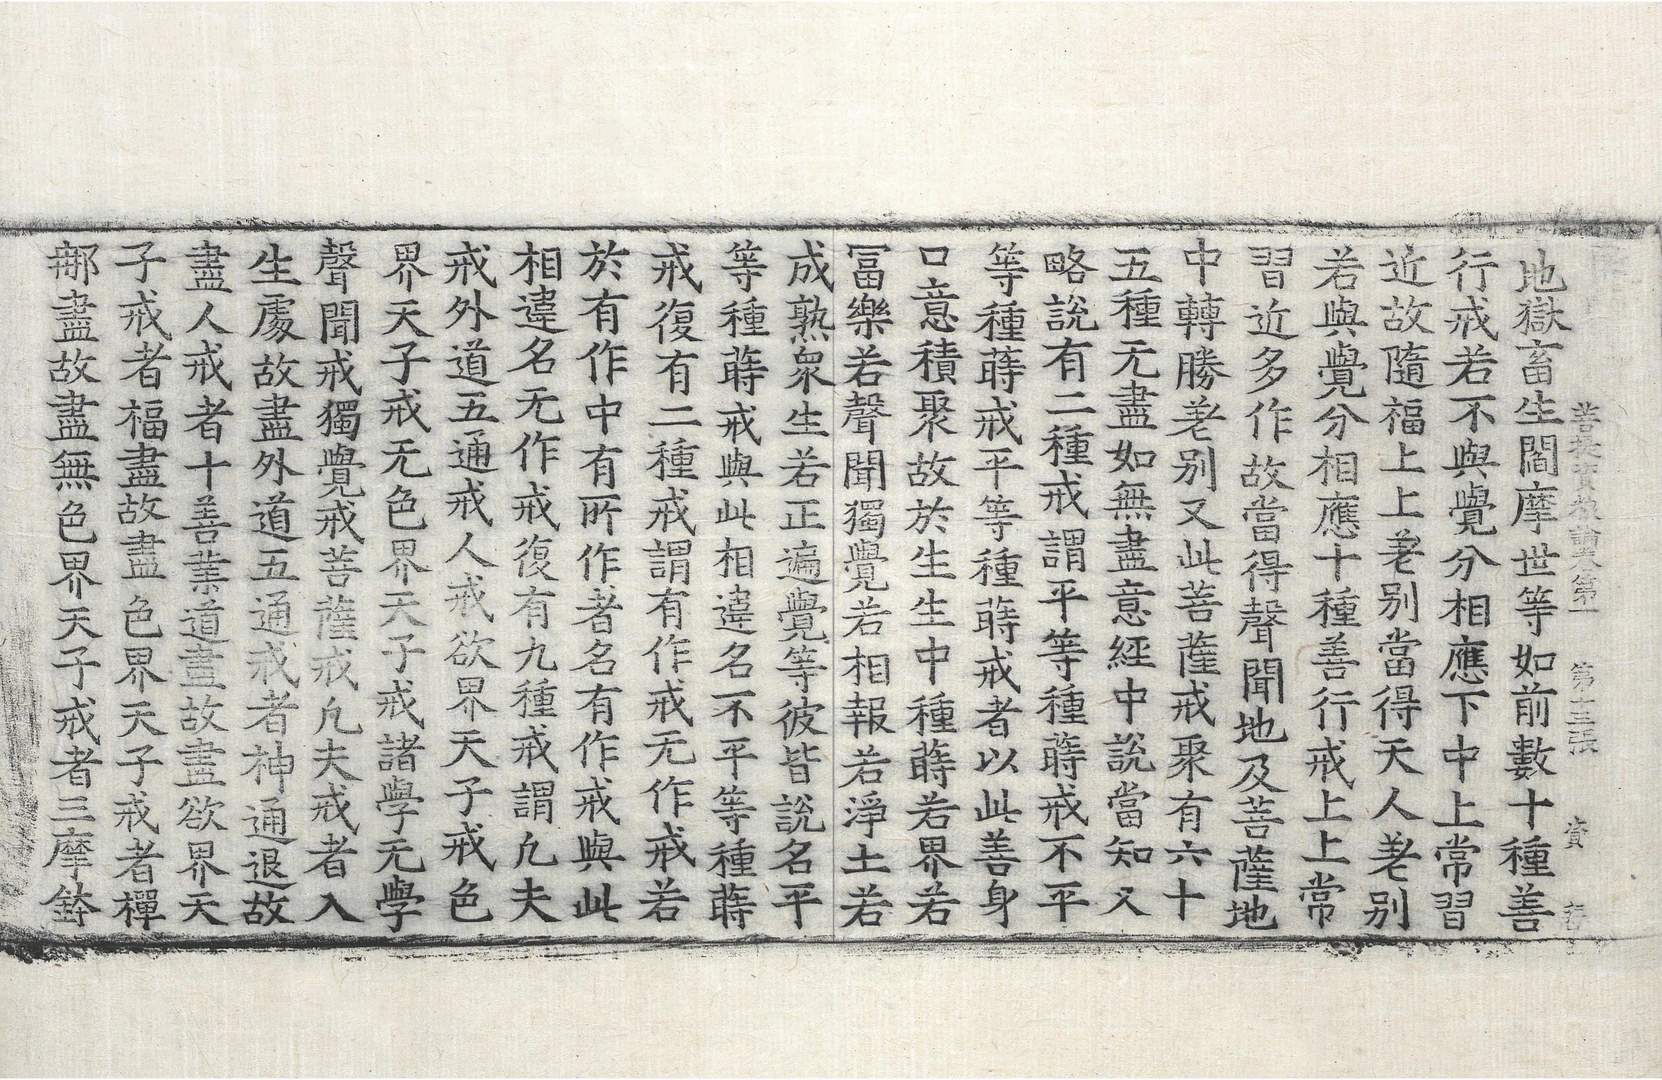 菩提資粮論卷第一 第十三張 賁
地獄畜生閻摩世等如前數十種善
行戒若不與覺分相應下中上常習
近故隨福上上差别當得天人差别
若與覺分相應十種善行戒上上常
習近多作故當得聲聞地及菩薩地
中轉勝差别又此菩薩戒聚有六十
五種无盡如無盡意經中說當知又
略說有二種戒謂平等種蒔戒不平
等種蒔戒平等種蒔戒者以此善身
口意積聚故於生生中種蒔若界若
冨樂若聲聞獨覺若相報若淨土若
成熟衆生若正遍覺等彼皆說名平
等種蒔戒與此相違名不平等種蒔
戒復有二種戒謂有作戒无作戒若
於有作中有所作者名有作戒與此
相違名无作戒復有九種戒謂凢夫
戒外道五通戒人戒欲界天子戒色
界天子戒无色界天子戒諸學无學
聲聞戒獨覺戒菩薩戒凢夫戒者入
生處故盡外道五通戒者神通退故
盡人戒者十善業道盡故盡欲界天
子戒者福盡故盡色界天子戒者禪
𨙻盡故盡無色界天子戒者三摩鉢